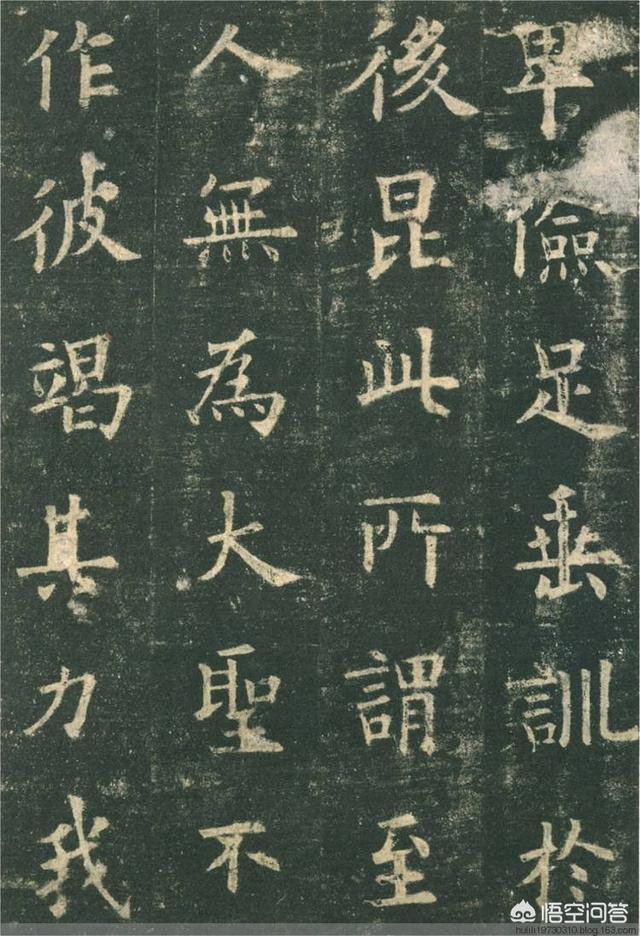 卑儉足垂訓於
後昆此所謂至
人無為大聖不
作彼竭其力我
悟空问答
hulili19730310.blog.163.com